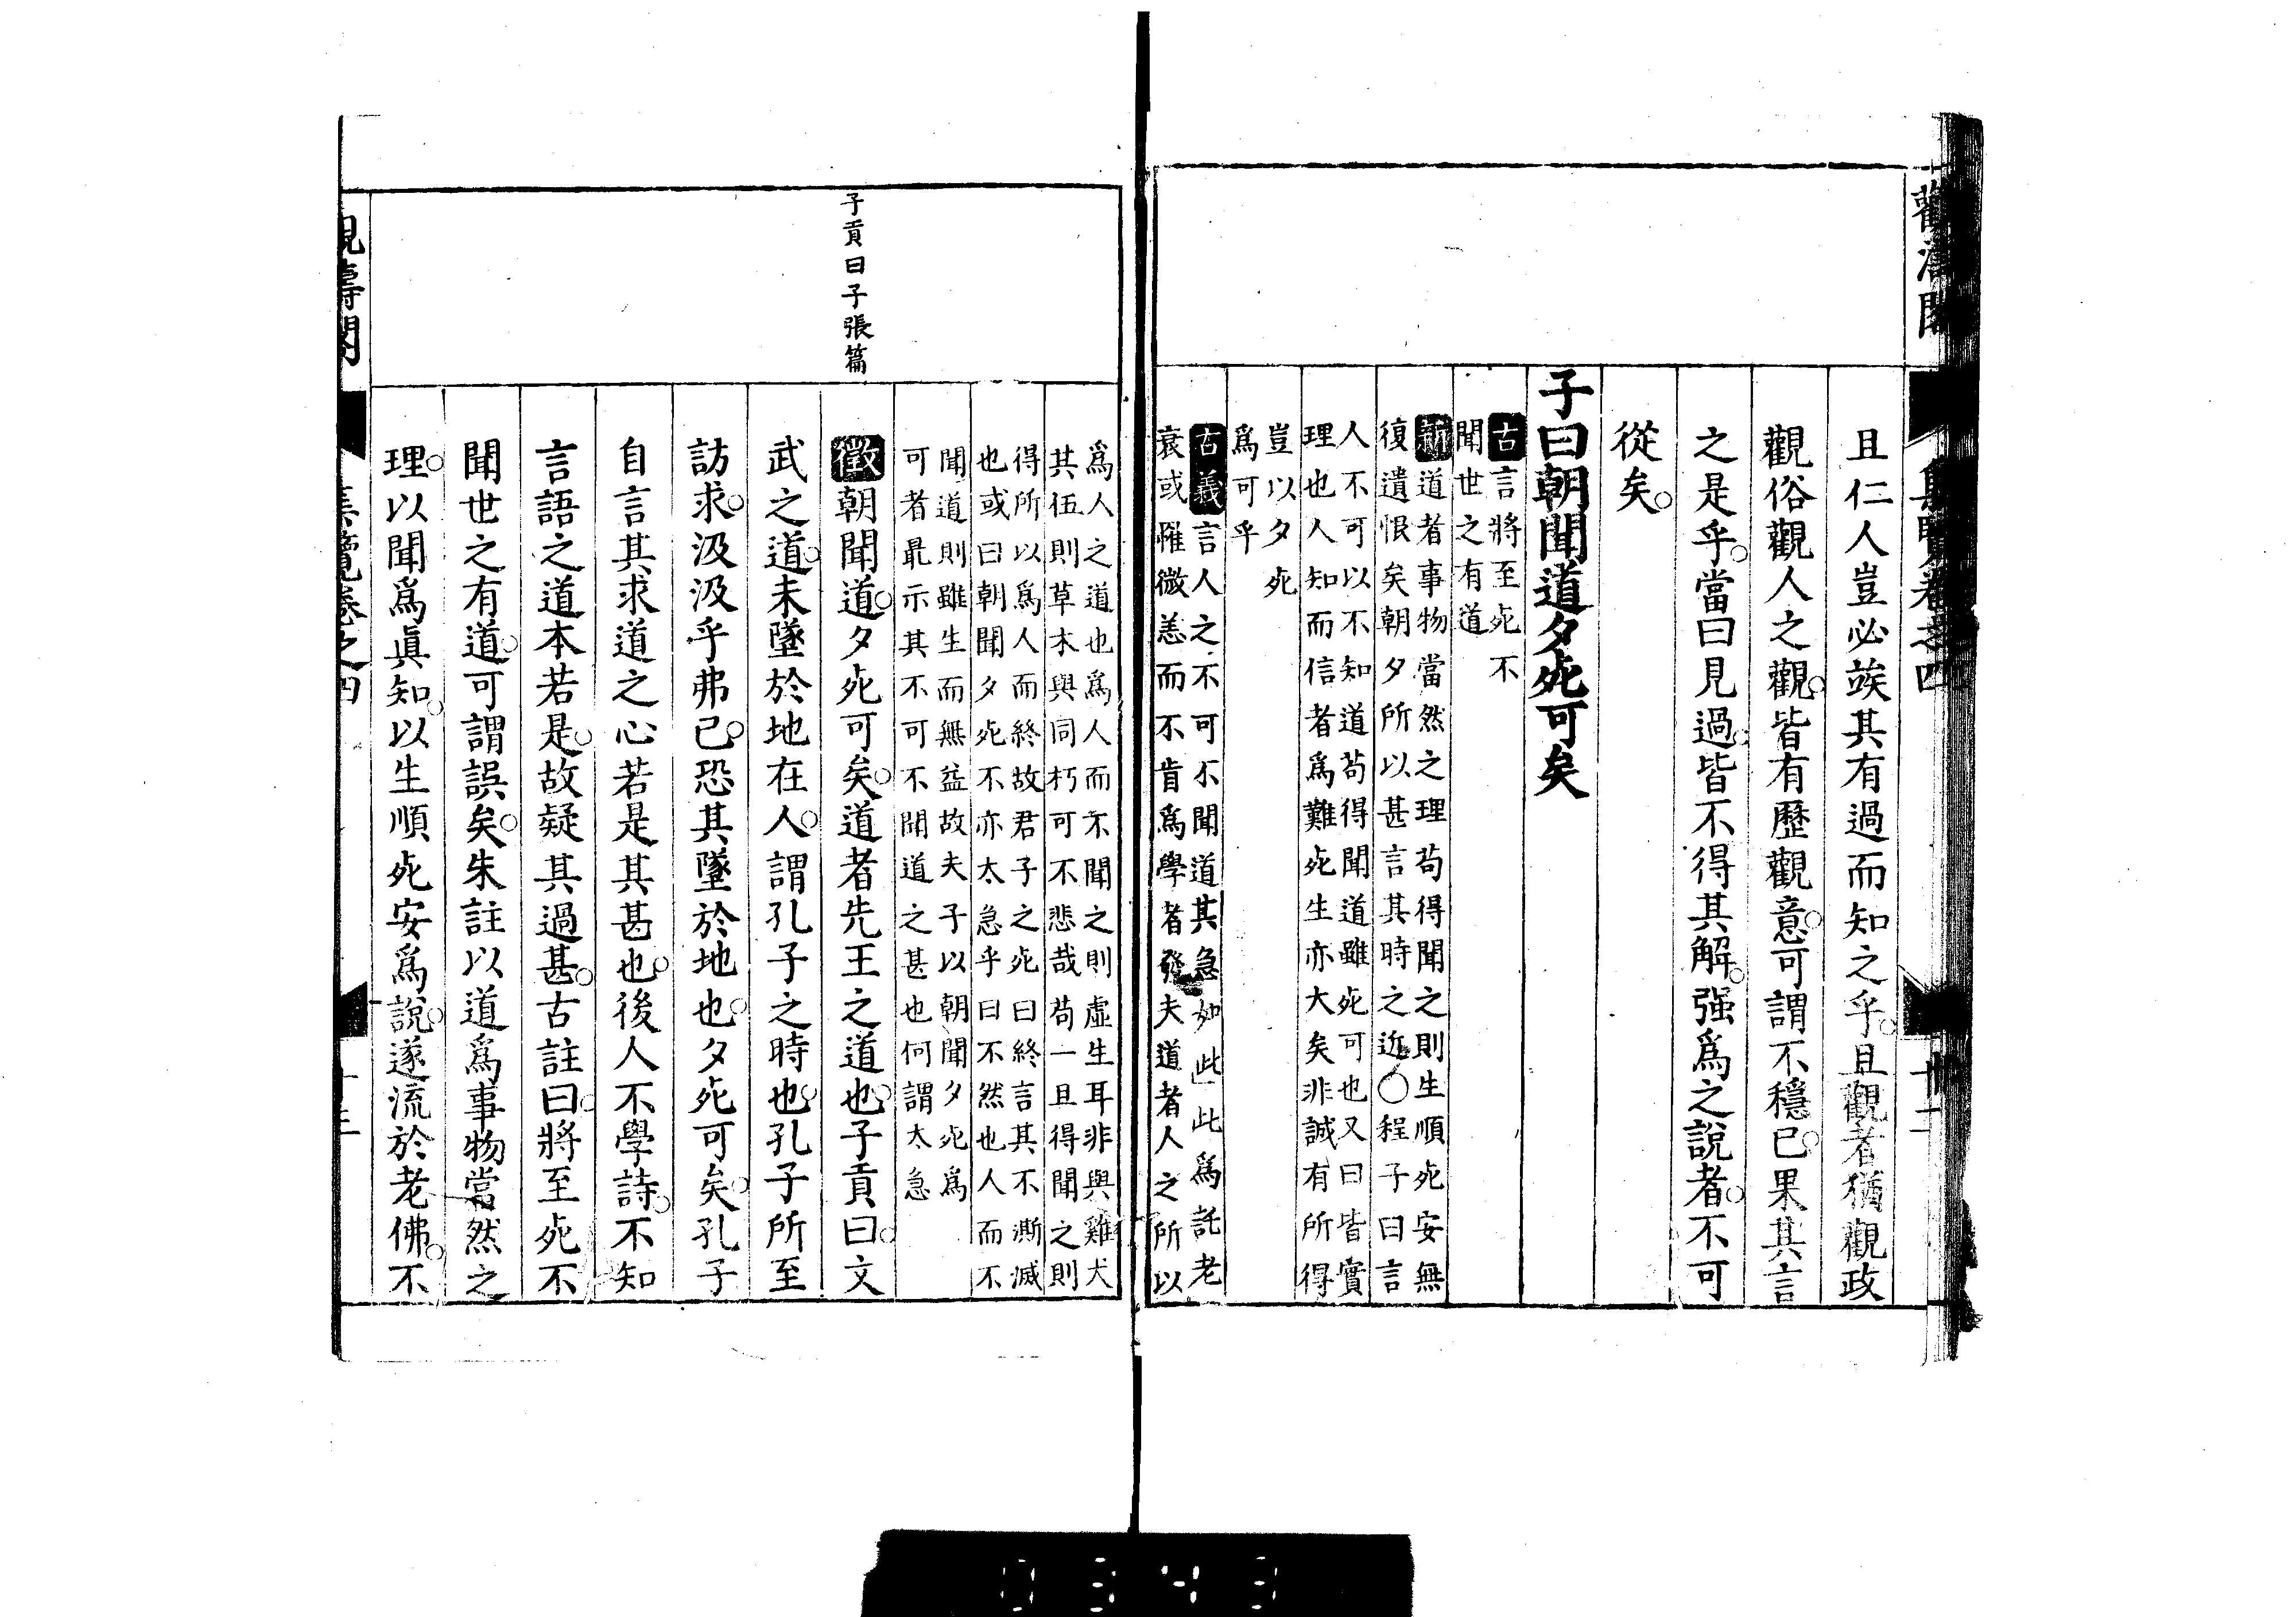 觀濤閣
集覽卷之四
十二
且仁人豈必竢其有過而知之乎且觀者猶觀政
觀俗觀人之觀皆有歷觀意可謂不穩已果其言
之是乎當曰見過皆不得其解强爲之說者不可
從矣
子曰朝聞道夕死可矣
古言將至死不
聞世之有道
新道者事物當然之理苟得聞之則生順死安無
復遺恨矣朝夕所以甚言其時之近○程子曰言
人不可以不知道苟得聞道雖死可也又曰皆實
理也人知而信者爲難死生亦大矣非誠有所得
豈以夕死
爲可乎
古義言人之不可不聞道其急如此此爲託老
衰或罹微恙而不肯爲學者發夫道者人之所以
子貢曰子張篇
爲人之道也爲人而不聞之則虛生耳非與雞犬
其伍則草木與同朽可不悲哉苟一旦得聞之則
得所以爲人而終故君子之死曰終言其不澌滅
也或曰朝聞夕死不亦太急乎曰不然也人而不
聞道則雖生而無益故夫子以朝聞夕死爲
可者最示其不可不聞道之甚也何謂太急
徵朝聞道夕死可矣道者先王之道也子貢曰文
武之道未墜於地在人謂孔子之時也孔子所至
訪求汲汲乎弗已恐其墜於地也夕死可矣孔子
自言其求道之心若是其甚也後人不學詩不知
言語之道本若是故疑其過甚古註曰將至死不
聞世之有道可謂誤矣朱註以道爲事物當然之
理以聞爲眞知以生順死安爲說遂流於老佛不
觀濤閣
集覽卷之四
十三
0343